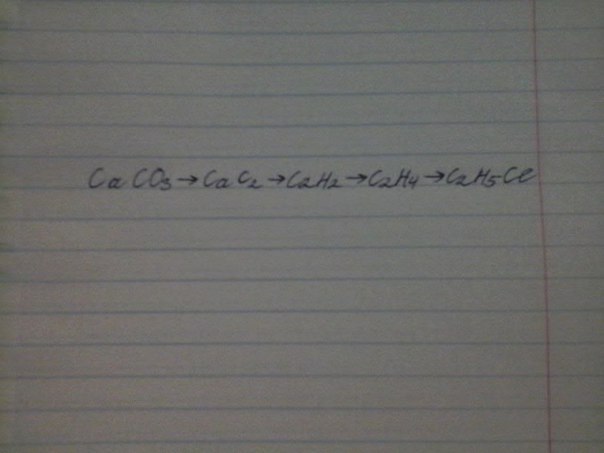 CaCO₃→CaC₂→C₂H₂→C₂H₄→C₂H₅Cl